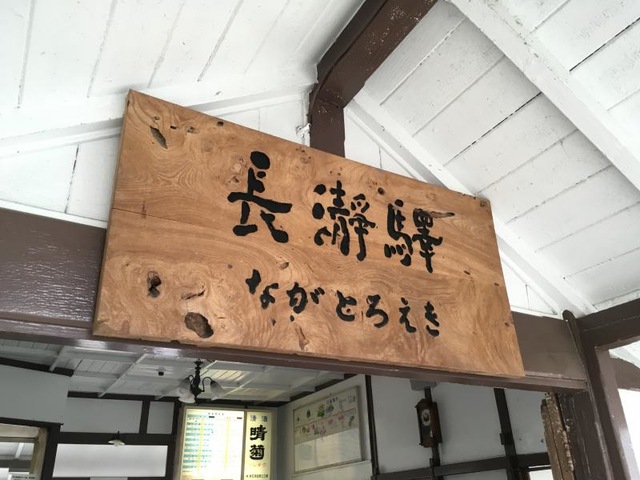 長瀞驛
ながとろえき
清酒
晴菊